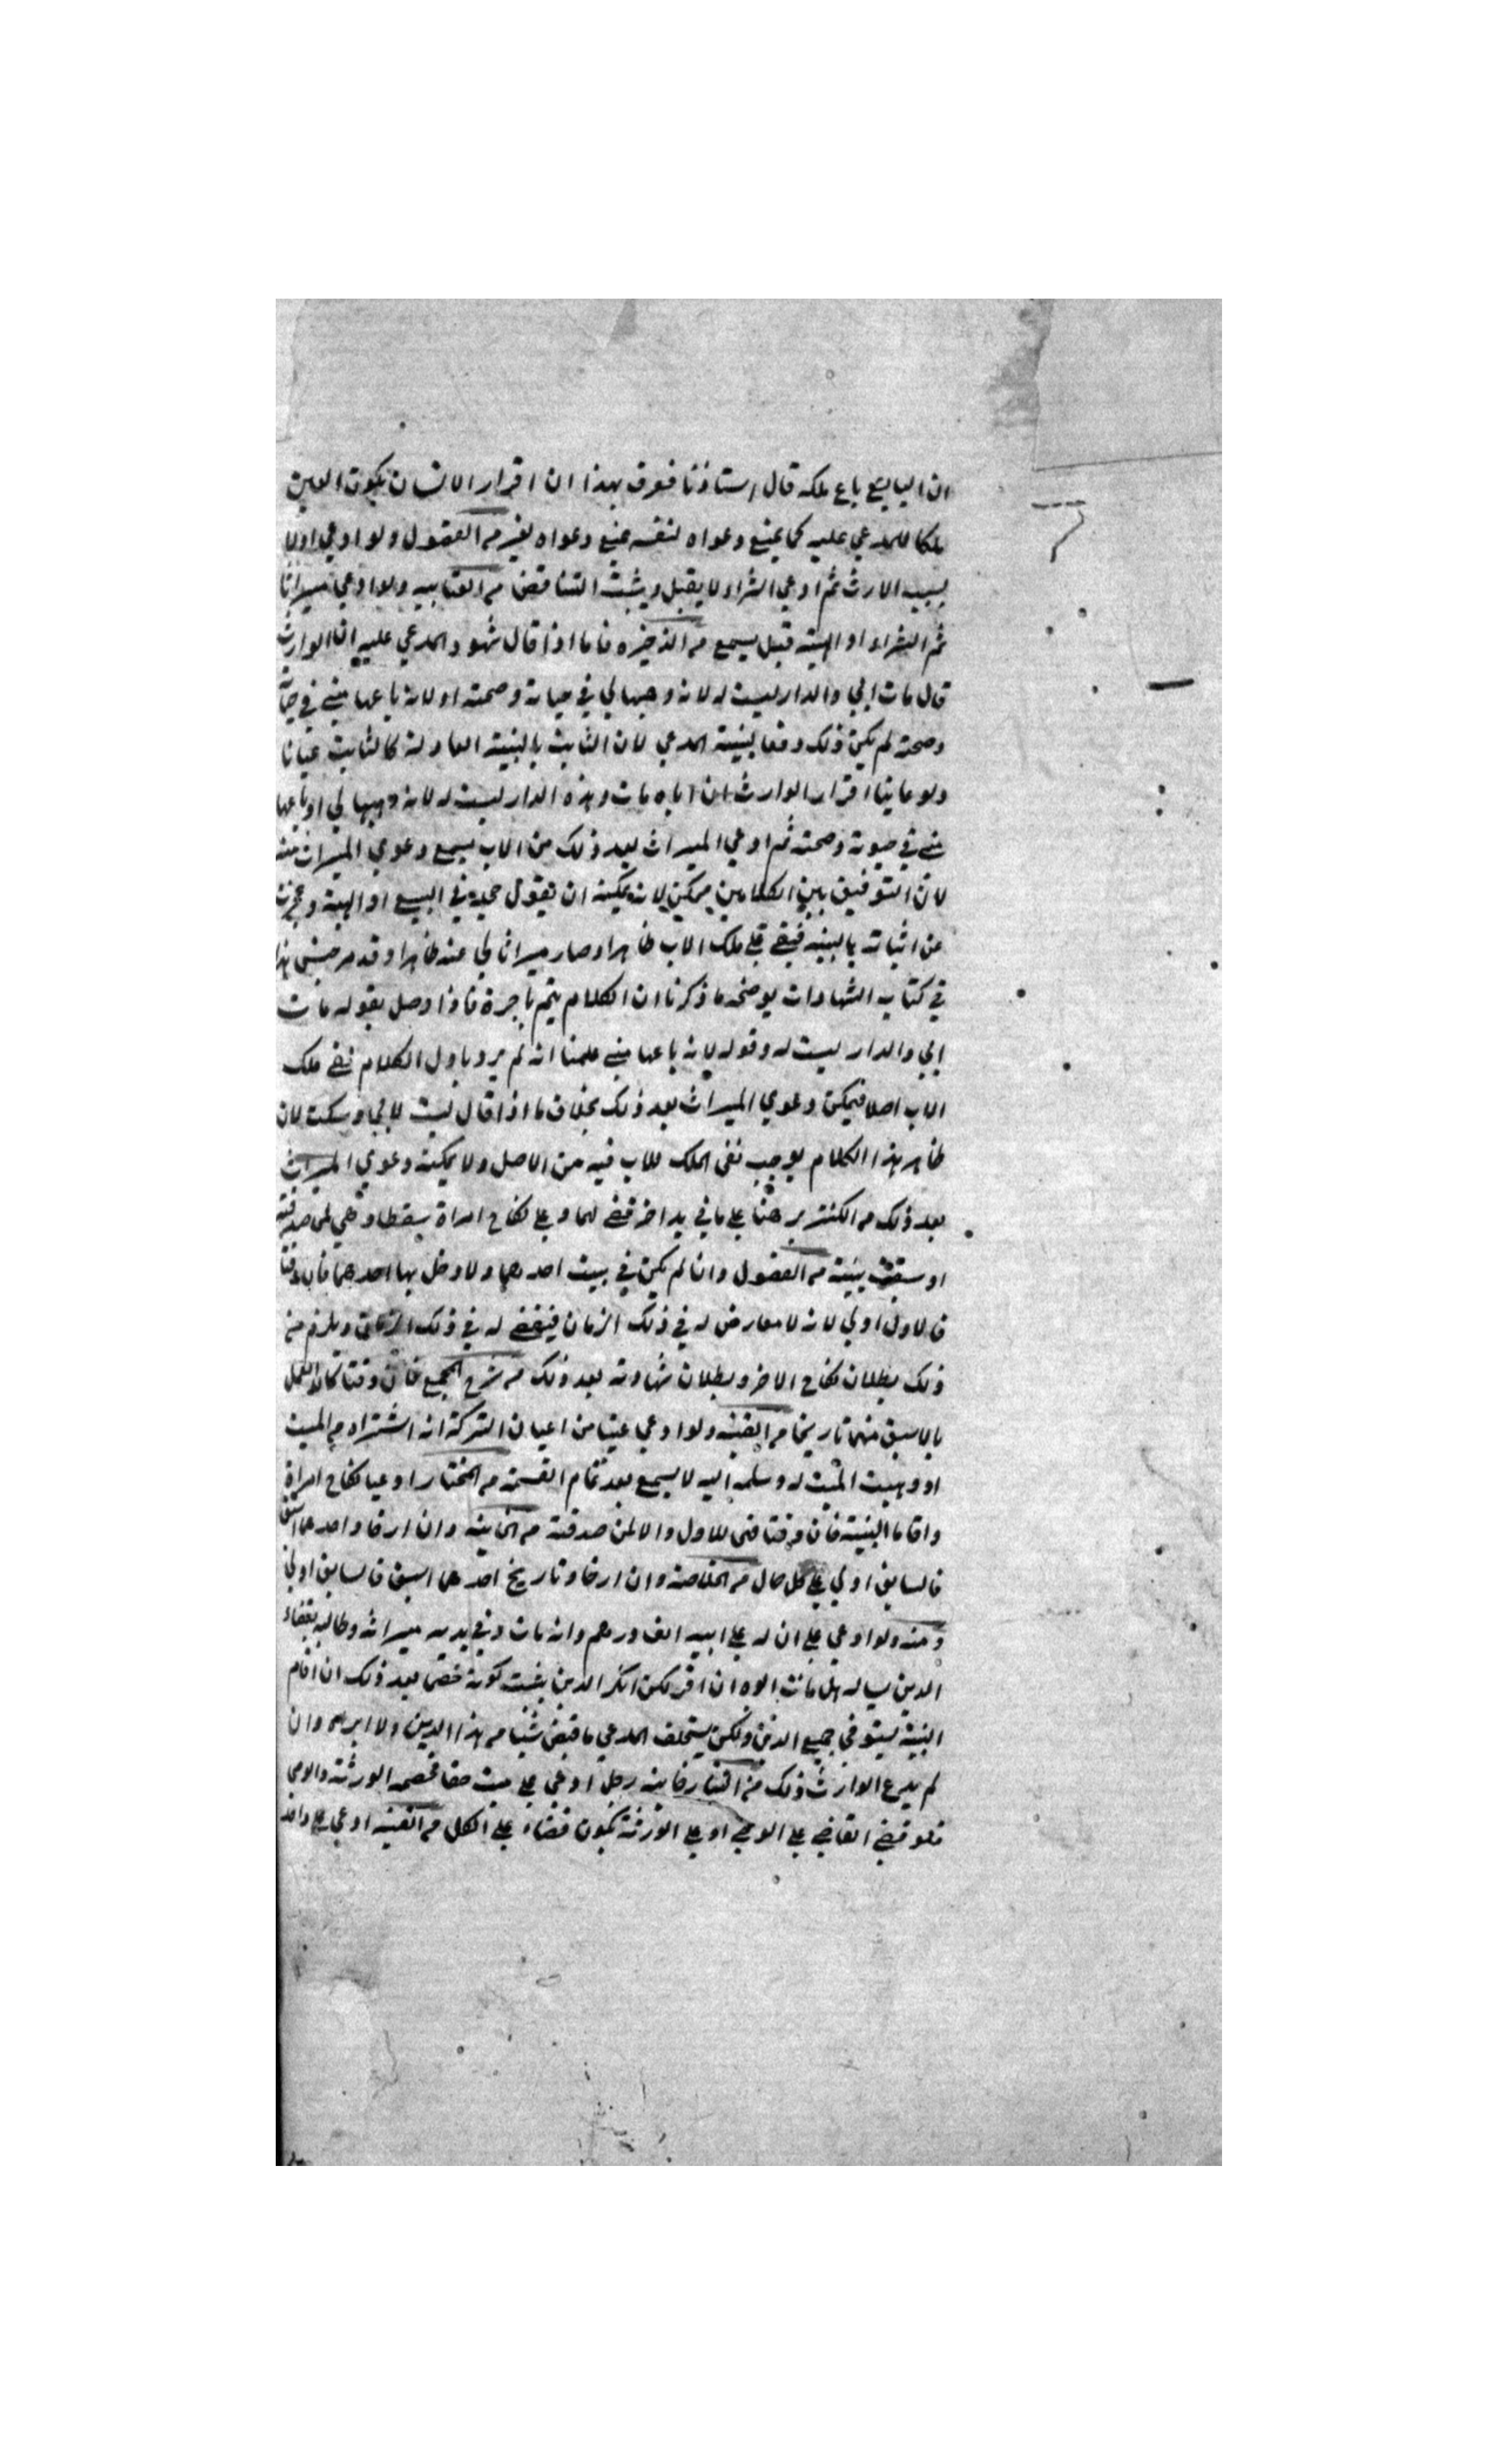 ان البايع باع ملكه قال استاذنا فعرف بهذا ان اقرار الانسان بكون العين
ملكا للمدعي عليه كما يمنع دعواه لنفسه يمنع دعواه لغيره من الفصول ولو ادعي اولا
بسبب الارث ثم ادعي الشراء لا يقبل ويثبت التناقض من العتابيه ولو ادعي ميراثا
ثم الشراء او الهبة قبل يسمع من الذخيره فاما اذا قال شهود المدعي عليه ان الوارث
قال مات ابي والدار ليست له لانه وهبها لي في حياته وصحته او لانه باعها مني في حياته
وصحته لم يكن ذلك دفعا لبينة المدعي لان الثابت بالبينة العادلة كالثابت عيانا
ولو عاينا اقرار الوارث ان اباه مات وهذه الدار ليست له لانه وهبها لي او باعها
مني في حيوته وصحته ثم ادعي الميراث بعد ذلك من الاب يسمع دعوي الميراث منه
لان التوفيق بين الكلامين ممكن لانه يمكنه ان يقول جحد في البيع او الهبة وعجزت
عن اثباته بالبينه فبقي علي ملك الاب ظاهرا وصار ميراثا لي عنه ظاهرا وقد مر جنس هذا
في كتاب الشهادات يوضحه ما ذكرنا ان الكلام يتم باخره فاذا وصل بقوله مات
ابي والدار ليست له وقوله لانه باعها مني علمنا انه لم يرد باول الكلام نفي ملك
الاب اصلا فيمكن دعوي الميراث بعد ذلك بخلاف ما اذا قال ليست لابي وسكت لان
ظاهر هذا الكلام يوجب نفي الملك للاب فيه من الاصل ولا يمكنه دعوي الميراث
بعد ذلك من الكنز برهنا علي ما في يد اخر قضي لهما وعلي نكاح امراة سقطا وهي لمن صدقته
او سبقت بينته من الفصول وان لم يكن في بيت احدهما ولا دخل بها احدهما فان وقتا
فالاول اولي لانه لا معارض له في ذلك الزمان فيقضي له في ذلك الزمان ويلزم منه
ذلك بطلان نكاح الاخر وبطلان شهادته بعد ذلك من شرح المجمع فان وقتا كان العمل
بالاسبق منهما تاريخا من القنيه ولو ادعي عينا من اعيان التركة انه اشتراه من الميت
او وهبت الميت له وسلمه اليه لا يسمع بعد تمام القسمة من المختار ادعيا نكاح امراة
واقاما البينة فان وقتا فهي للاول والا لمن صدقته من الخانيه وان ارخا واحدهما اسبق
فالسابق اولي علي كل حال من الخلاصة وان ارخا وتاريخ احدهما اسبق فالسابق اولي
ومنه ولو ادعي علي ان له علي ابيه الف درهم وانه مات وفي يديه ميراثه وطالبه بقضاء
الدين يساله هل مات ابوه ان اقر لكن انكر الدين يثبت كونه خصما بعد ذلك ان اقام
البينة يستوفي جميع الدين ولكن يستحلف المدعي ما قبض شيئا من هذا الدين ولا ابراه وان
لم يدع الوارث ذلك من التتارخانيه رجل ادعي علي ميت حقا فخصمه الورثة والوصي
فلو قضي القاضي علي الوصي او علي الورثة يكون قضاء علي الكل من القنيه ادعي علي واحد